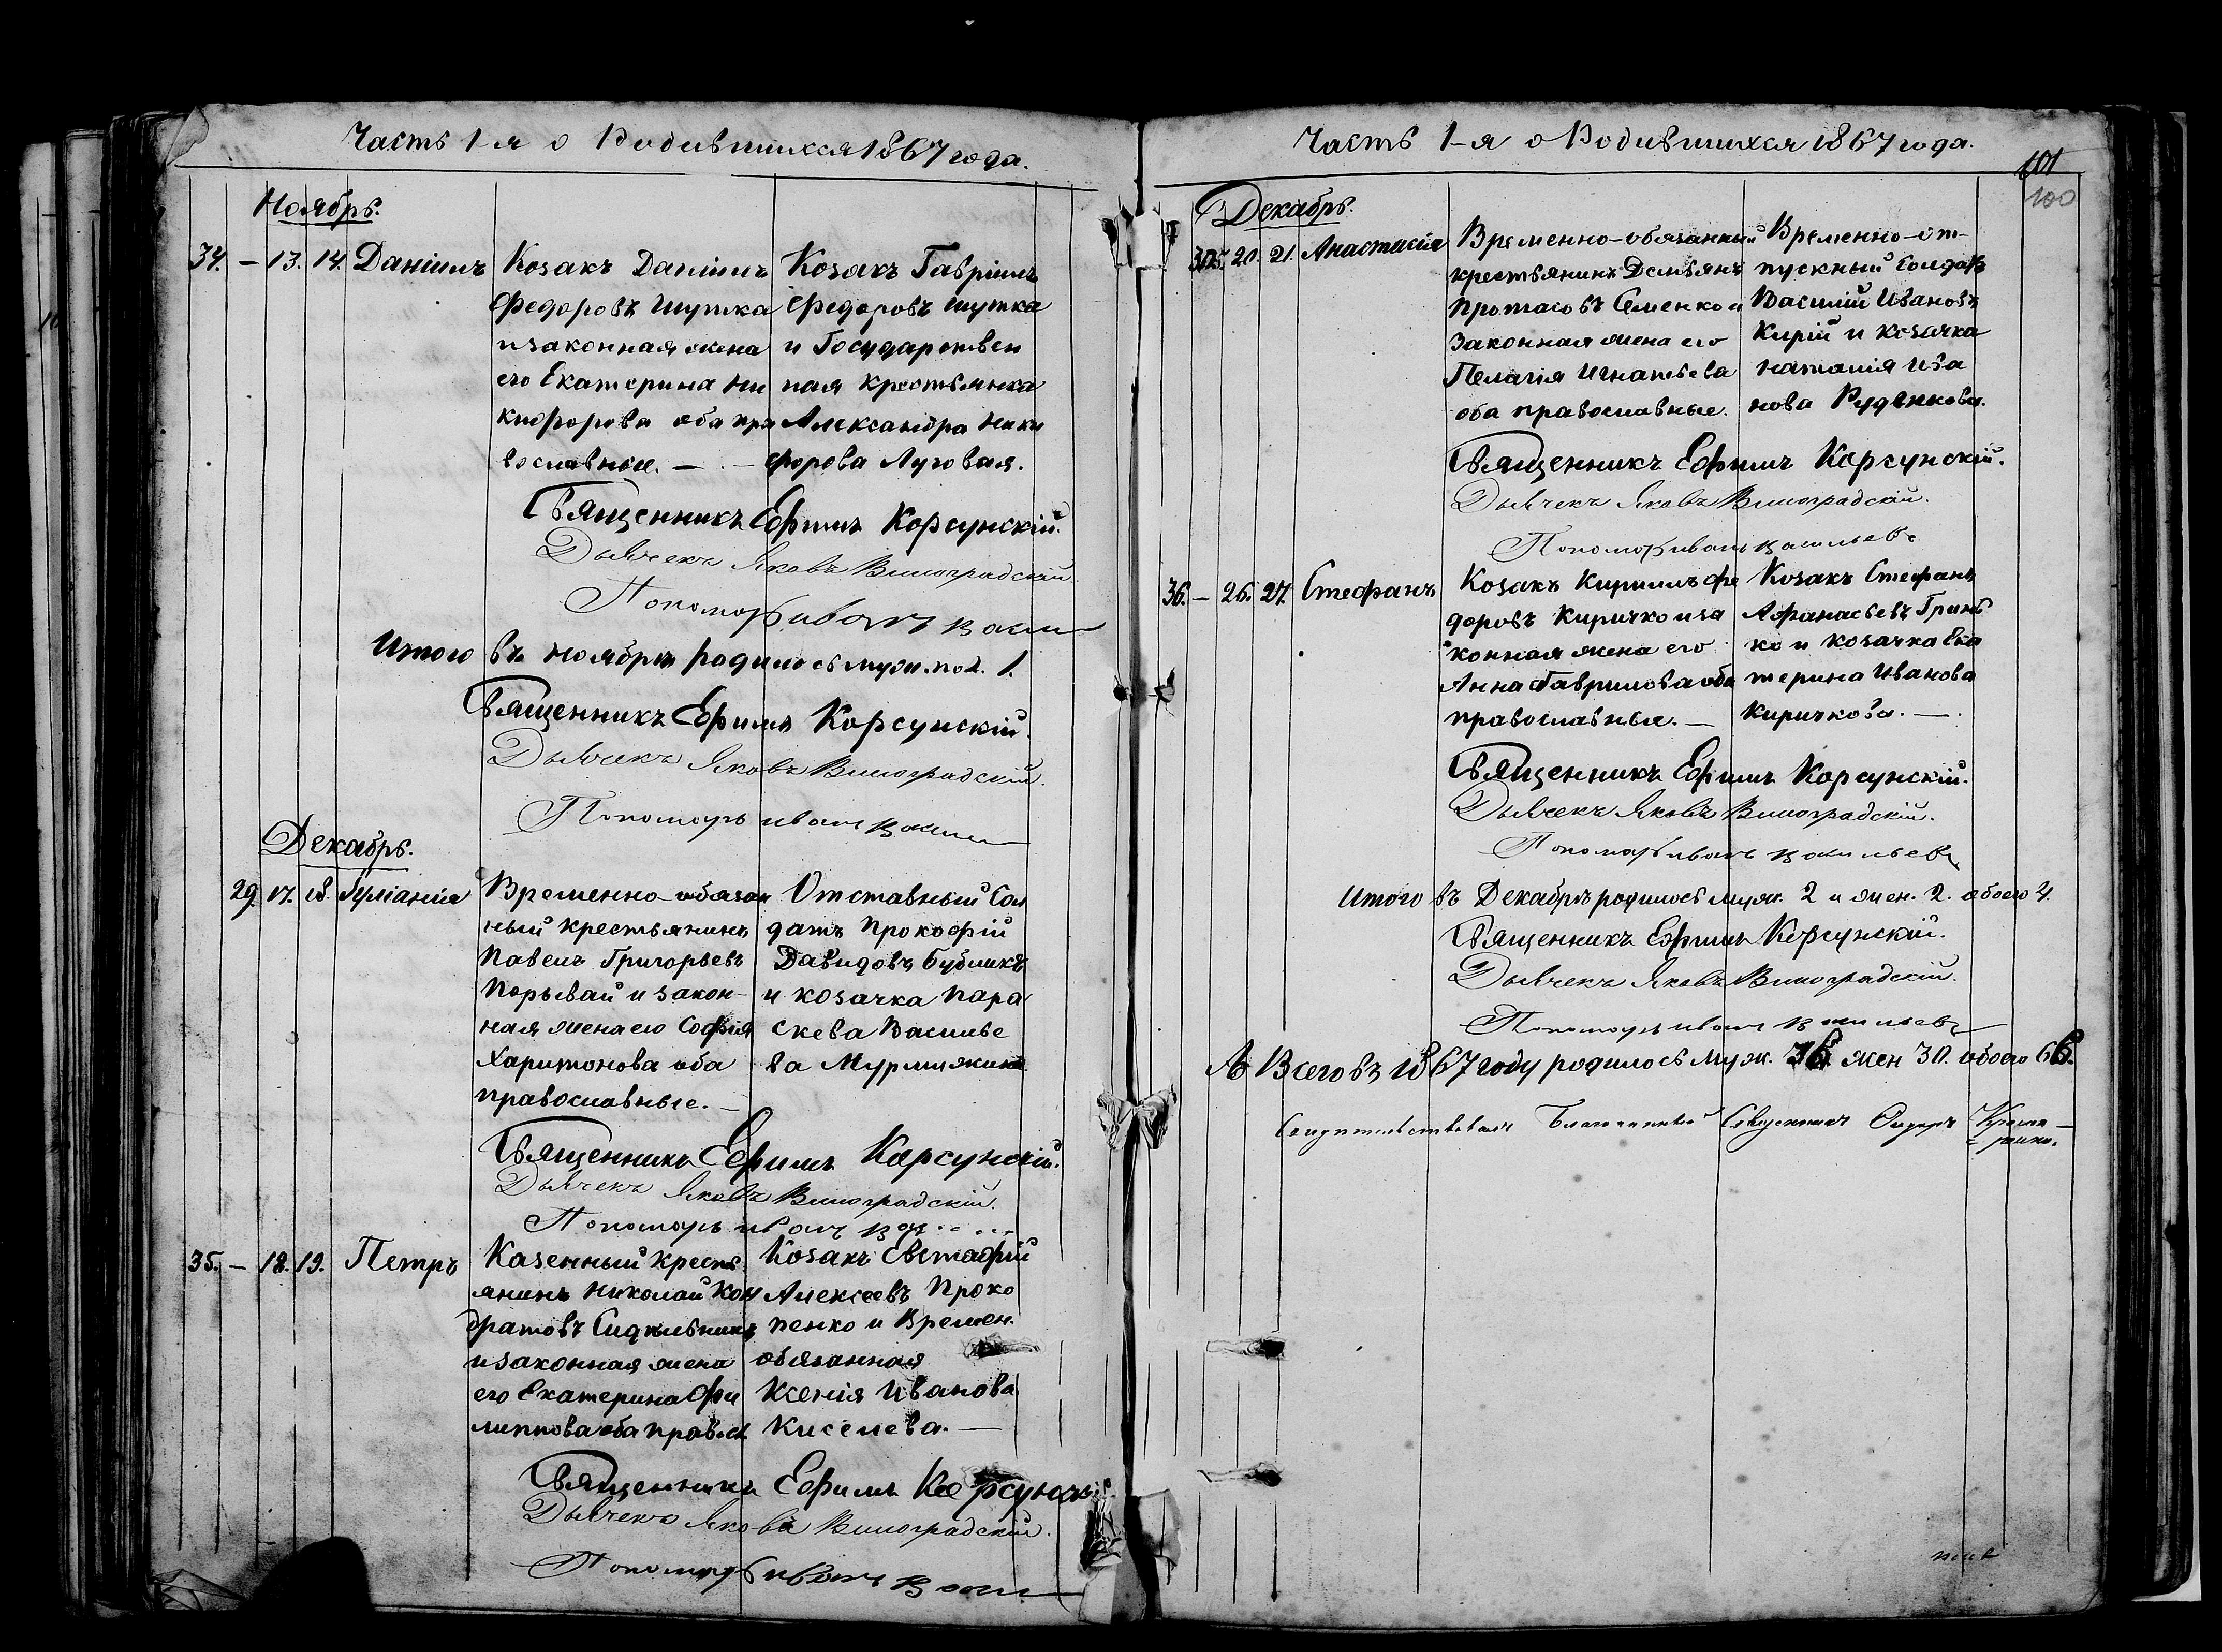 Часть 1-я о Родившихся 1867 года.
Ноябрь.
34. – 13. 14. Даніилъ
Козакъ Даніилъ
Федоровъ Шутка
и законная жена
его Екатерина Ни
кифорова оба пра
вославные. —
Козакъ Гавріилъ
Федоровъ Шутка
и Государствен
ная крестьянка
Александра Ники
форова Луговая.
Священникъ Ефимъ Корсунскій.
Дьячекъ Яковъ Виноградскій
Пономарь Иванъ
Итого въ ноябрѣ родилось муж. пол. 1.
Священникъ Ефимъ Корсунскій.
Дьячекъ Яковъ Виноградскій.
Пономарь Иванъ
Декабрь.
29. 17. 18. Іуліанія
Временно-обязан
ный крестьянинъ
Павелъ Григорьевъ
Порывай и закон-
ная жена его Софія
Харитонова оба
православные. —
Отставный Сол
датъ Прокофій
Давидовъ Бубликъ
и козачка Пара
скева Василье
ва
Священникъ Ефимъ Корсунскій.
Дьячекъ Яковъ Виноградскій.
Пономарь Иванъ
35. – 18. 19. Петръ
Казенный крестъ
янинъ Николай Кон
дратовъ
и законная жена
его Екатерина Фи
липпова оба правосл
Козакъ Евстафій
Алексеевъ Проко
пенко и Времен.
обязанная
Ксенія Иванова
Киселева. —
Священникъ Ефимъ Корсунскій
Дьячекъ Яковъ Виноградскій.
Пономарь Иванъ
Часть 1-я о Родившихся 1867 года.
101
100
Декабрь.
30. 20. 21. Анастасія
Временно-обязанный
крестьянинъ Демьянъ
Протасовъ Семенко и
законная жена его
Пелагія Игнатьева
оба православные.
Временно-от-
пускный Солдатъ
Василій Ивановъ
Кирій и козачка
Наталія Ива
нова Руденкова.
Священникъ Ефимъ Корсунскій.
Дьячекъ Яковъ Виноградскій.
Пономарь Иванъ Васильевъ
36. – 26. 27. Стефанъ
Козакъ Кириллъ Фе
доровъ Киричко и за
конная жена его
Анна Гаврилова оба
православные. —
Козакъ Стефанъ
Афанасьевъ Гринь
ко и козачка Ека
терина Иванова
Киричкова. —
Священникъ Ефимъ Корсунскій.
Дьячекъ Яковъ Виноградскій.
Пономарь Иванъ Васильевъ
Итого въ Декабрѣ родилось муж. 2 и жен. 2. обоего 4.
Священникъ Ефимъ Корсунскій.
Дьячекъ Яковъ Виноградскій.
Пономарь Иванъ Васильевъ
А Всего въ 1867 году родилось муж. 36. жен 30. обоего 66.
Свидетельствовалъ Благочинный Священникъ